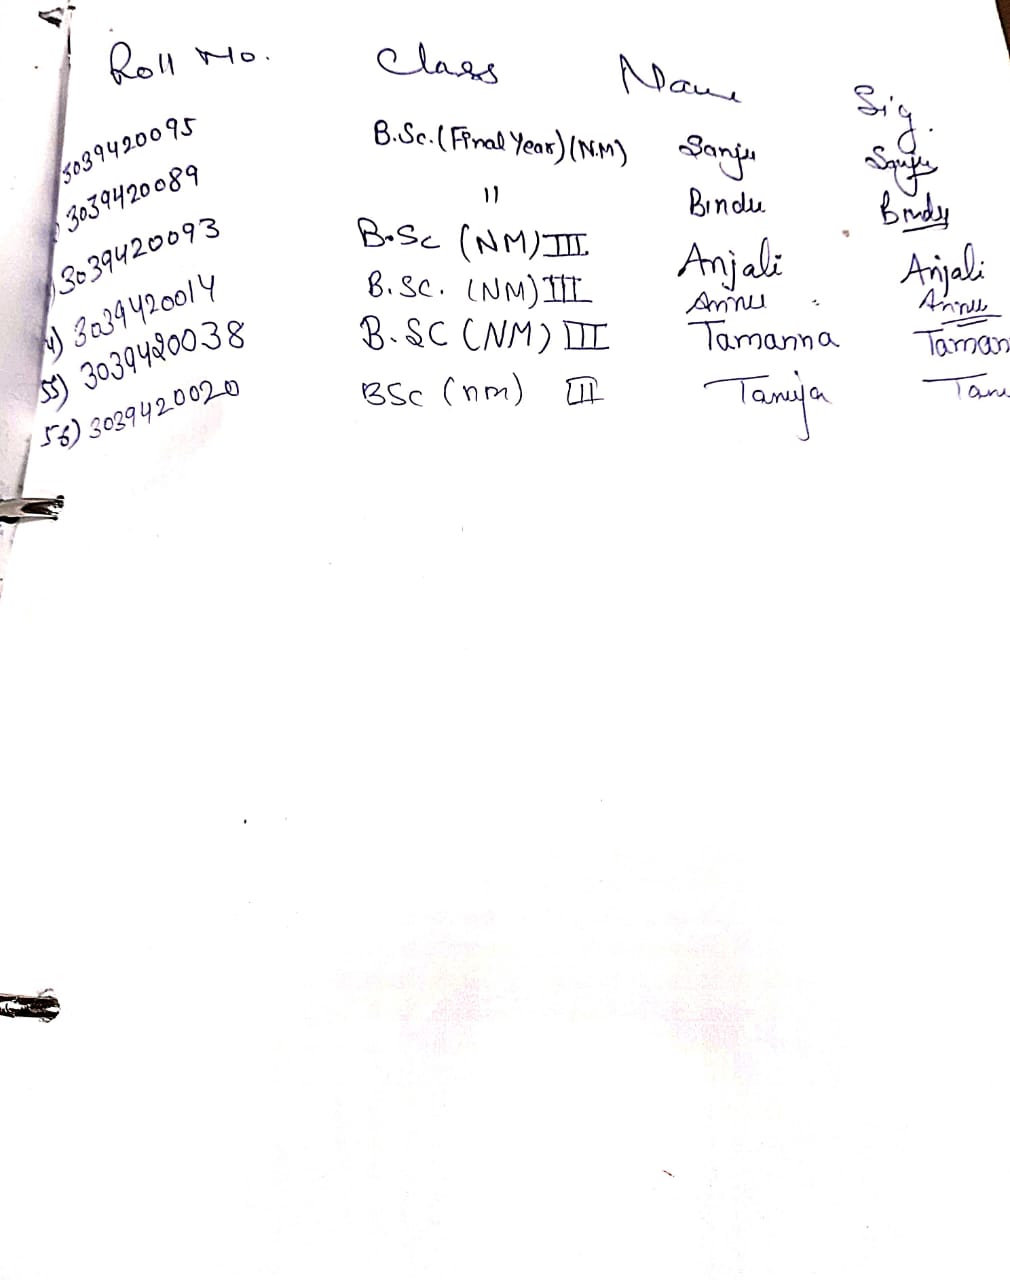 Roll No. Class Name Sig.
3039420095 B.Sc. (Final Year) (N.M) Sanju Sanju
3039420089 " Bindu Bindu
3039420093 B.Sc (NM) III Anjali Anjali
4) 3039420014 B.SC. (NM) III Annu Annu
55) 3039420038 B.SC (NM) III Tamanna Taman
56) 3039420020 BSc (nm) III Tanuja Tanu